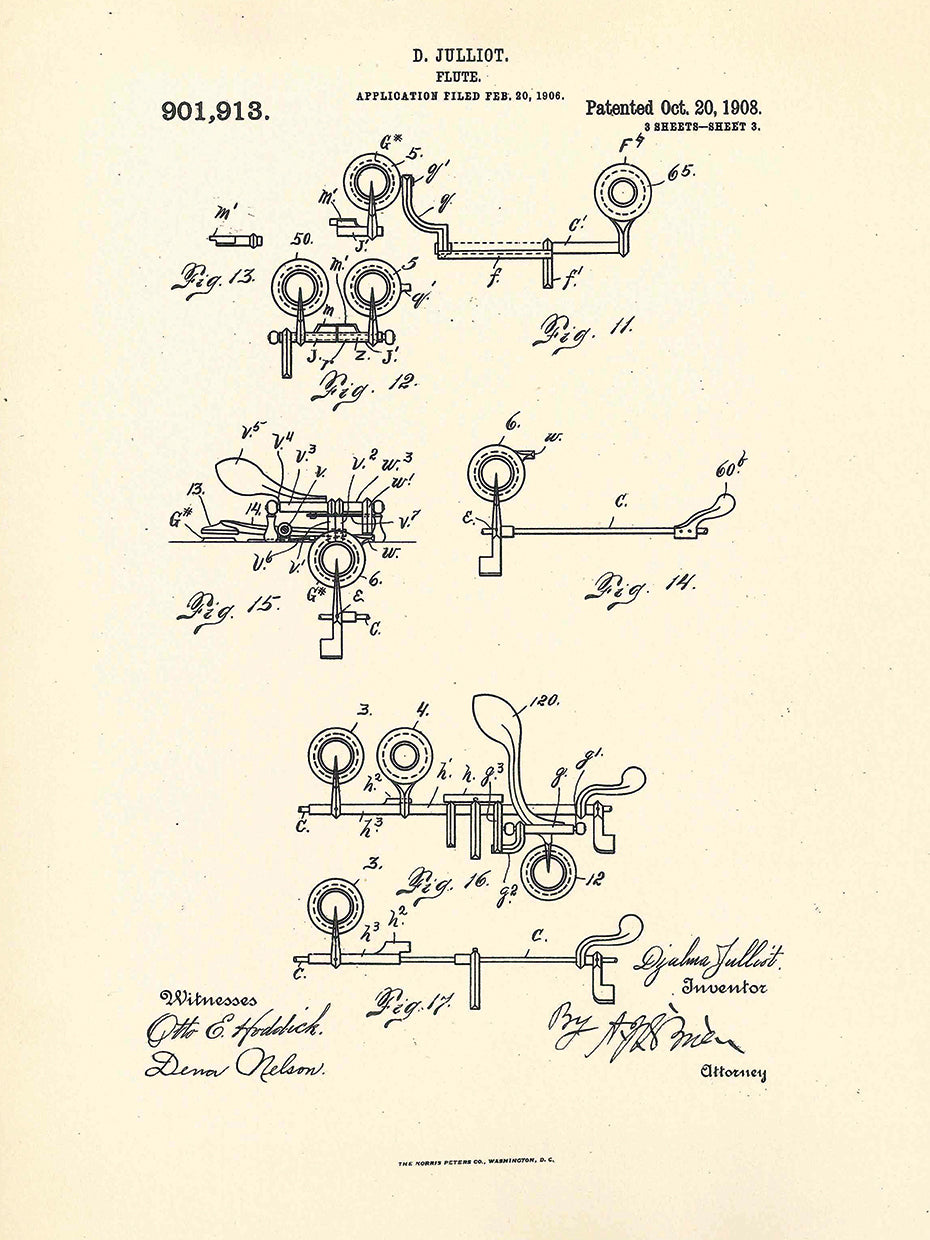 D. JULLIOT.
FLUTE.
APPLICATION FILED FEB. 20, 1906.
901,913.
Patented Oct. 20, 1908.
3 SHEETS—SHEET 3.
G# 5. g' g. F♮ 65.
m' J. C.' f. f.'
Fig. 11.
m'
Fig. 13.
50. m' 5 g'
m J. r z. J.'
Fig. 12.
v.5 v.4 v.3 v. v.2 w.3 w' v.7
13. 14. G* v.6 v.' w.
G* 6. E. C.
Fig. 15.
6. w. 60b
E. C.
Fig. 14.
3. 4. 120.
h.2 h.' h. g.3 g. g'
C. h3 g2 12
Fig. 16.
3.
h3 h.2 C.
C.
Fig. 17.
Djalma Julliot.
Inventor
Witnesses
Otto E. Hoddick.
Dena Nelson.
By
Attorney
THE NORRIS PETERS CO., WASHINGTON, D. C.